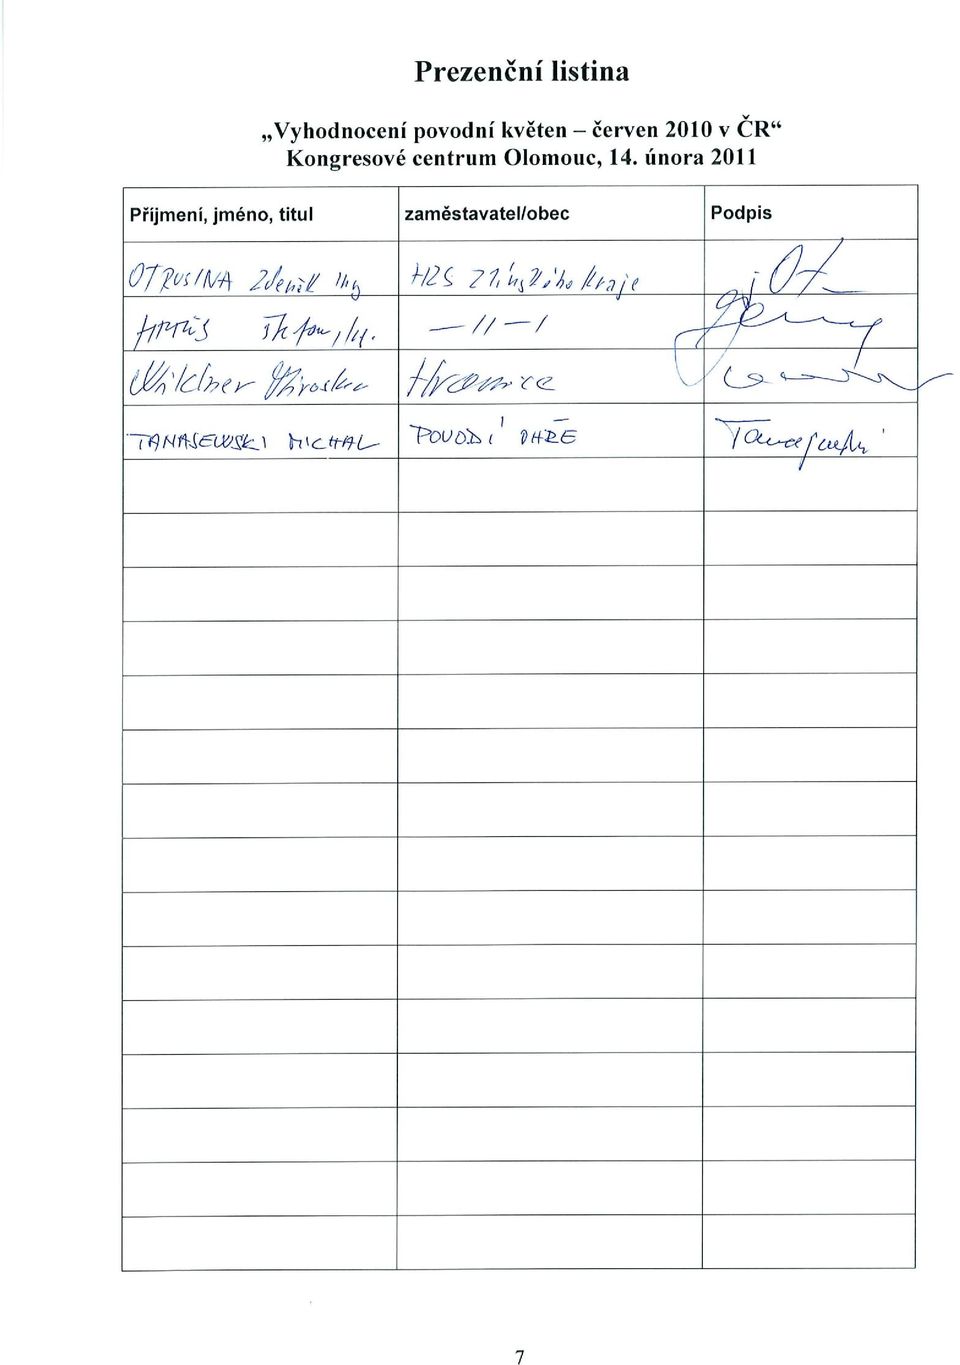 Prezenční listina
„Vyhodnocení povodní květen – červen 2010 v ČR“
Kongresové centrum Olomouc, 14. února 2011
Příjmení, jméno, titul zaměstavatel/obec Podpis
OTRUSINA Zdeněk Ing HZS Zlínského kraje
— // — /
Wildner Miroslav Hranice
TANASEWSKI MICHAL POVODÍ OHŘE
7